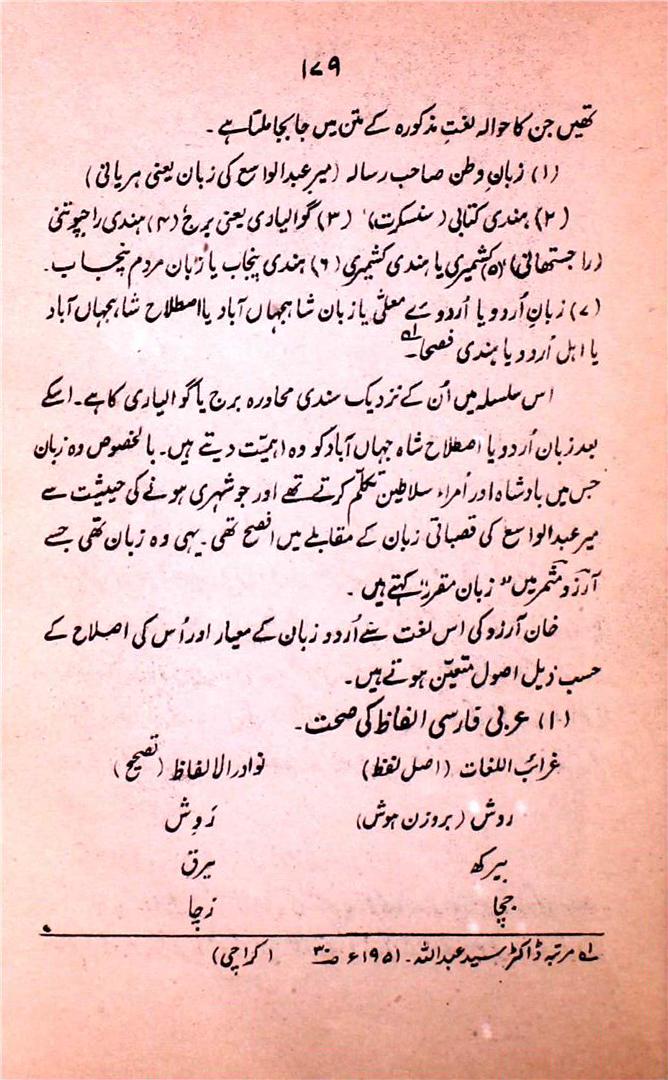 ۱۷۹
تھیں جن کا حوالہ لغتِ مذکورہ کے متن میں جا بجا ملتا ہے۔
(۱) زبانِ وطن صاحب رسالہ (میر عبدالواسع کی زبان یعنی ہریانی)
(۲) ہندی کتابی (سنسکرت) (۳) گوالیاری یعنی برج (۴) ہندی راجپوتنی
(راجستھانی) (۵) کشمیری یا ہندی کشمیری (۶) ہندی پنجاب یا زبان مردم پنجاب۔
(۷) زبانِ اُردو یا اُردوے معلّٰی یا زبان شاہجہاں آباد یا اصطلاح شاہجہاں آباد
یا اہل اُردو یا ہندی فصحا۔ لہ
اس سلسلہ میں اُن کے نزدیک سندی محاورہ برج یا گوالیاری کا ہے۔ اسکے
بعد زبان اُردو یا اصطلاح شاہ جہاں آباد کو وہ اہمیّت دیتے ہیں۔ بالخصوص وہ زبان
جس میں بادشاہ اور اُمراء سلاطین تکلّم کرتے تھے اور جو شہری ہونے کی حیثیت سے
میر عبدالواسع کی قصباتی زبان کے مقابلے میں افصح تھی۔ یہی وہ زبان تھی جسے
آرزو مثمر میں "زبان مقرر" کہتے ہیں۔
خان آرزو کی اس لغت سے اُردو زبان کے معیار اور اُس کی اصلاح کے
حسب ذیل اصول متعیّن ہوتے ہیں۔
(۱) عربی فارسی الفاظ کی صحت۔
غرائب اللغات (اصل لفظ) نوادر الالفاظ (تصحیح)
روش (بروزن ہوش) رَوِش
بیرکھ بیرق
جچا زچا
لہ مرتبہ ڈاکٹر سید عبداللہ۔ ۱۹۵۱ء ص۳۰ (کراچی)